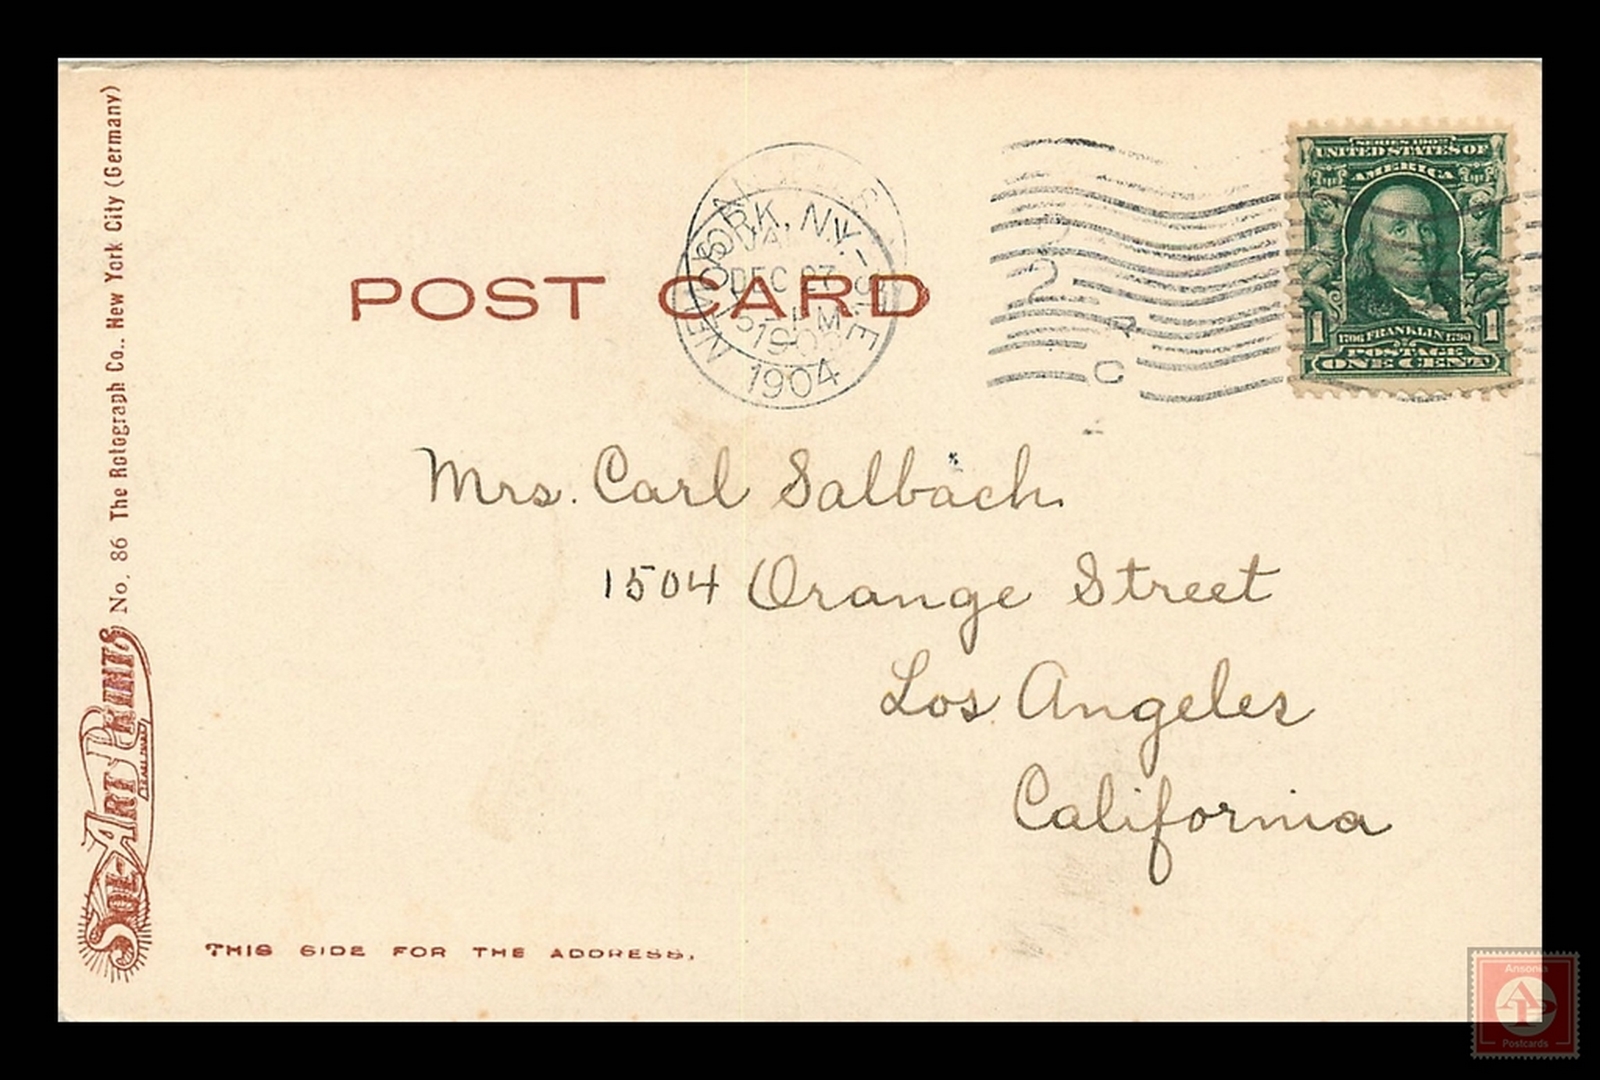 No. 86 The Rotograph Co., New York City (Germany)
SOL-ART PRINTS
TRADE MARK
POST CARD
NEW YORK, N.Y.
DEC 27
1904
2
SERIES 1902
UNITED STATES OF
AMERICA
1 1706 FRANKLIN 1790 1
POSTAGE
ONE CENT
Mrs. Carl Salbach.
1504 Orange Street
Los Angeles
California
THIS SIDE FOR THE ADDRESS.
Ansonia
AP
Postcards